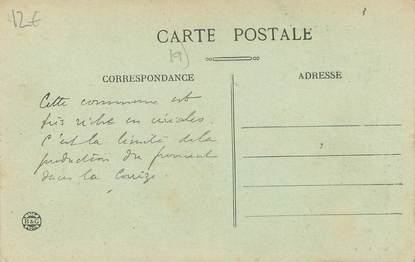 12€
CARTE POSTALE
19)
CORRESPONDANCE
ADRESSE
Cette commune est
très riche en céréales.
C'est la limite de la
production du froment
dans la Corrèze
B&G